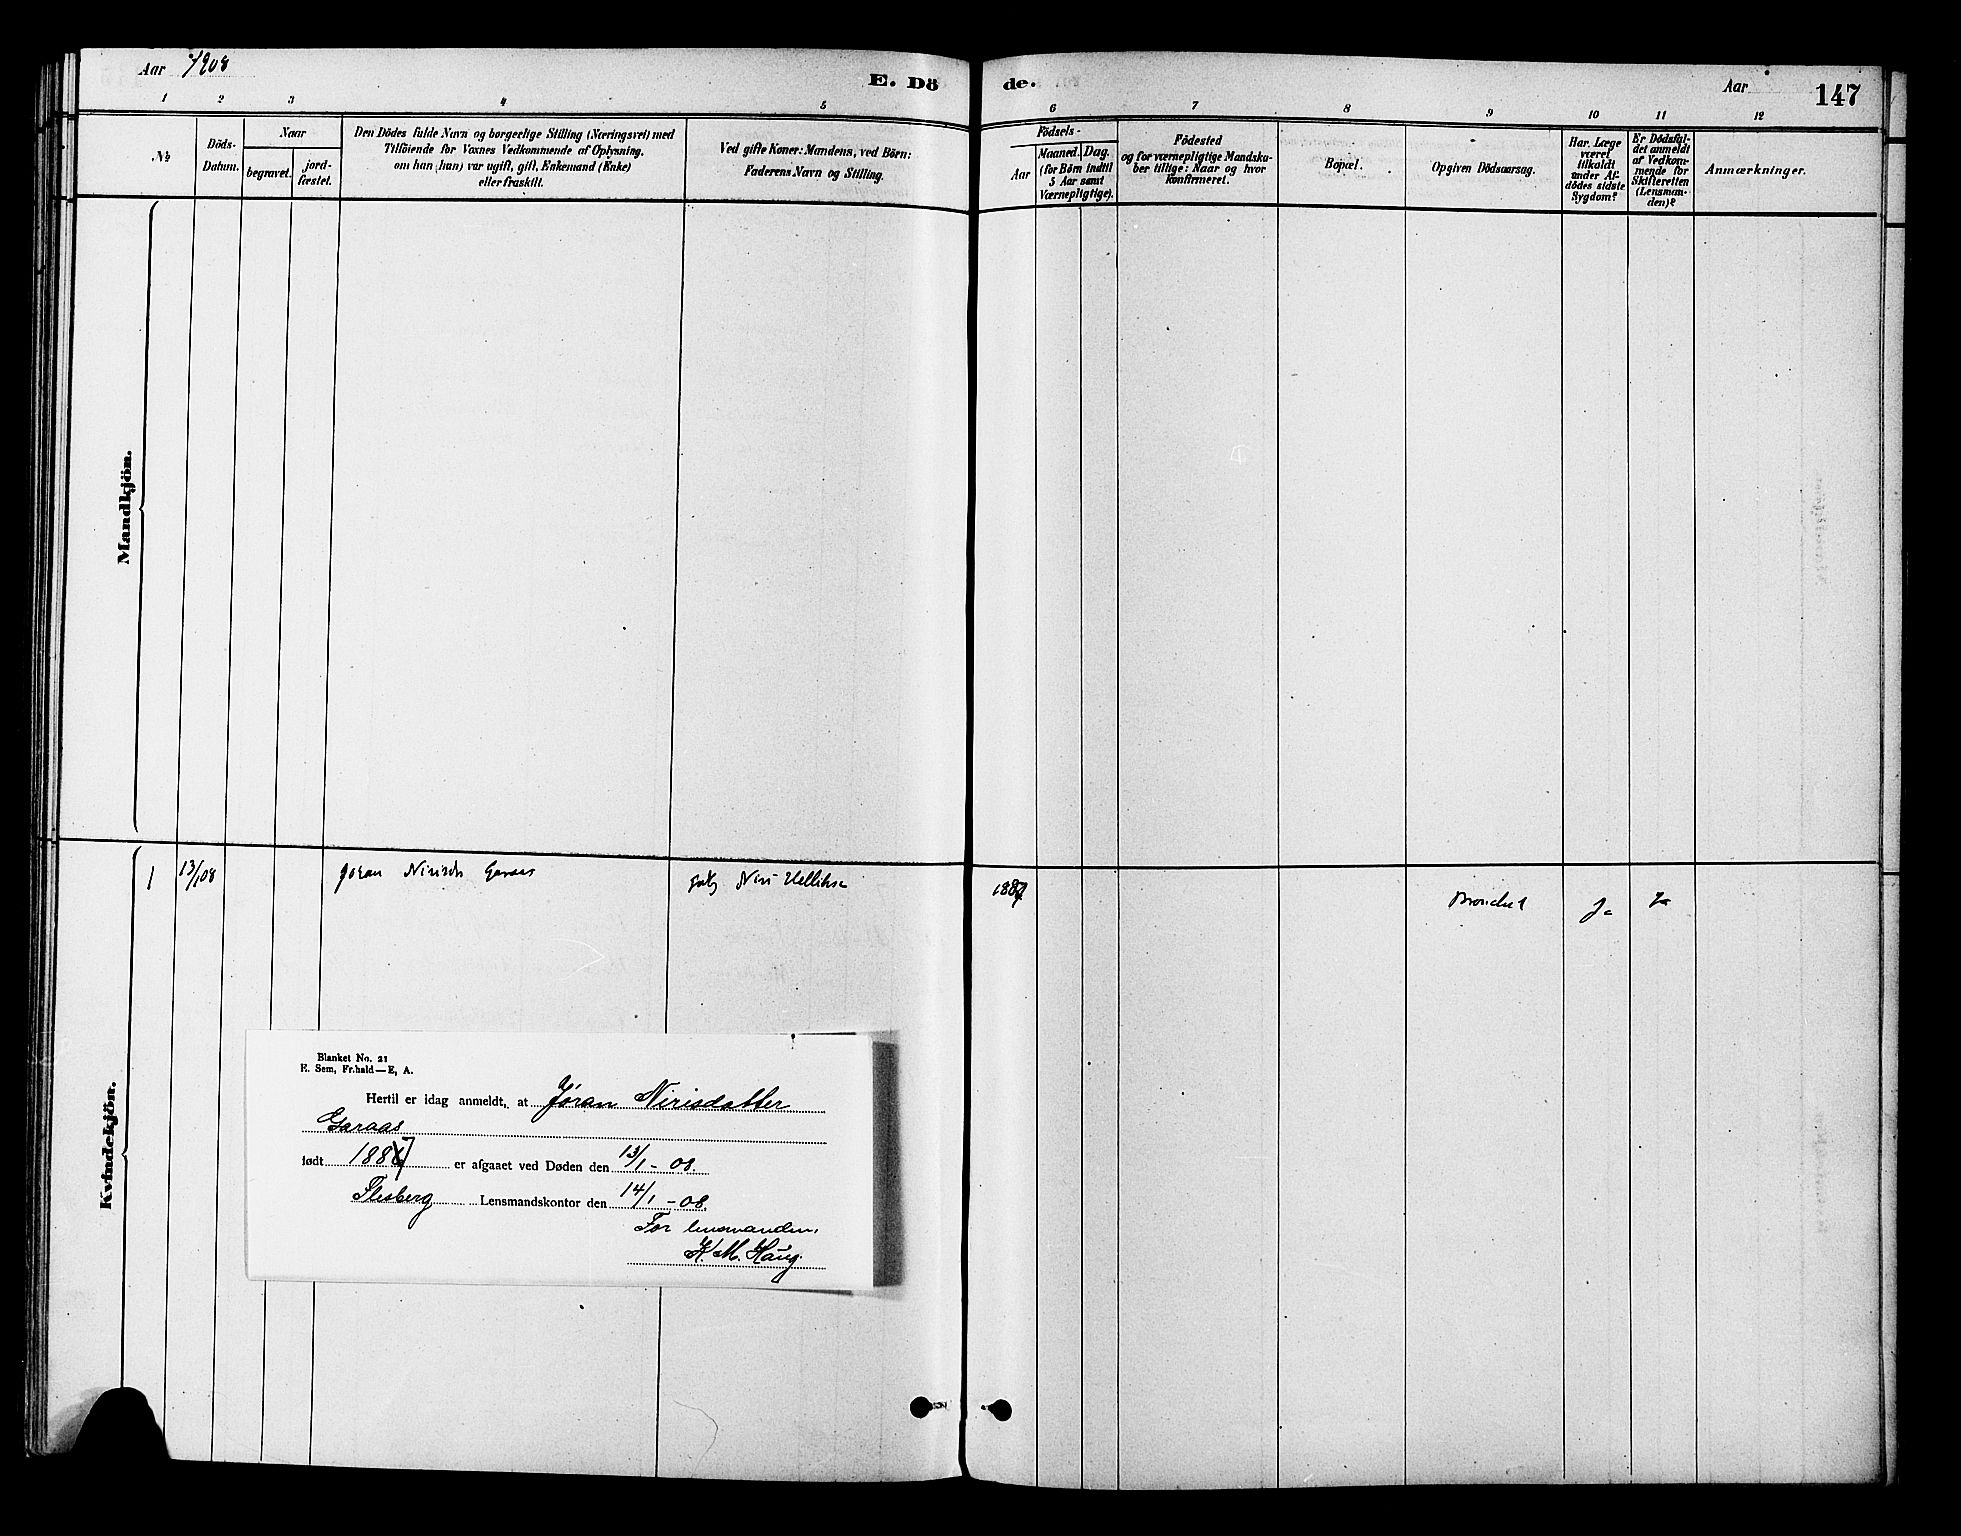 Aar 1908
E. Dö
de.
Aar
147
1 2 3 4 5
6 7 8 9 10 11 12
№
Döds-
Datum.
Naar
begravet.
jord-
fæstet.
Den Dödes fulde Navn og borgerlige Stilling (Næringsvei) med
Tilföiende for Voxnes Vedkommende af Oplysning,
om han (hun) var ugift, gift, Enkemand (Enke)
eller fraskilt.
Ved gifte Koner: Mandens, ved Börn:
Faderens Navn og Stilling.
Födsels-
Aar
Maaned. Dag.
(for Börn indtil
5 Aar samt
Værnepligtige).
Födested
og for værnepligtige Mandska-
ber tillige: Naar og hvor
Konfirmeret.
Bopæl.
Opgiven Dödsaarsag.
Har Læge
været
tilkaldt
under Af-
dödes sidste
Sygdom?
Er Dödsfal-
det anmeldt
af Vedkom-
mende for
Skifteretten
(Lensman-
den)?
Anmærkninger.
Mandkjön.
Kvindekjön.
1 13/1 08 Jöran Nirisdr Garaas Niri Helliksen 1887 Bronchit Ja Ja
Blanket No. 21
E. Sem, Fr.hald—E, A.
Hertil er idag anmeldt, at Jøran Nirisdatter
Garaas
født 1887 er afgaaet ved Døden den 13/1 - 08.
Flesberg Lensmandskontor den 14/1 - 08.
For lensmanden.
K. M. Haug.